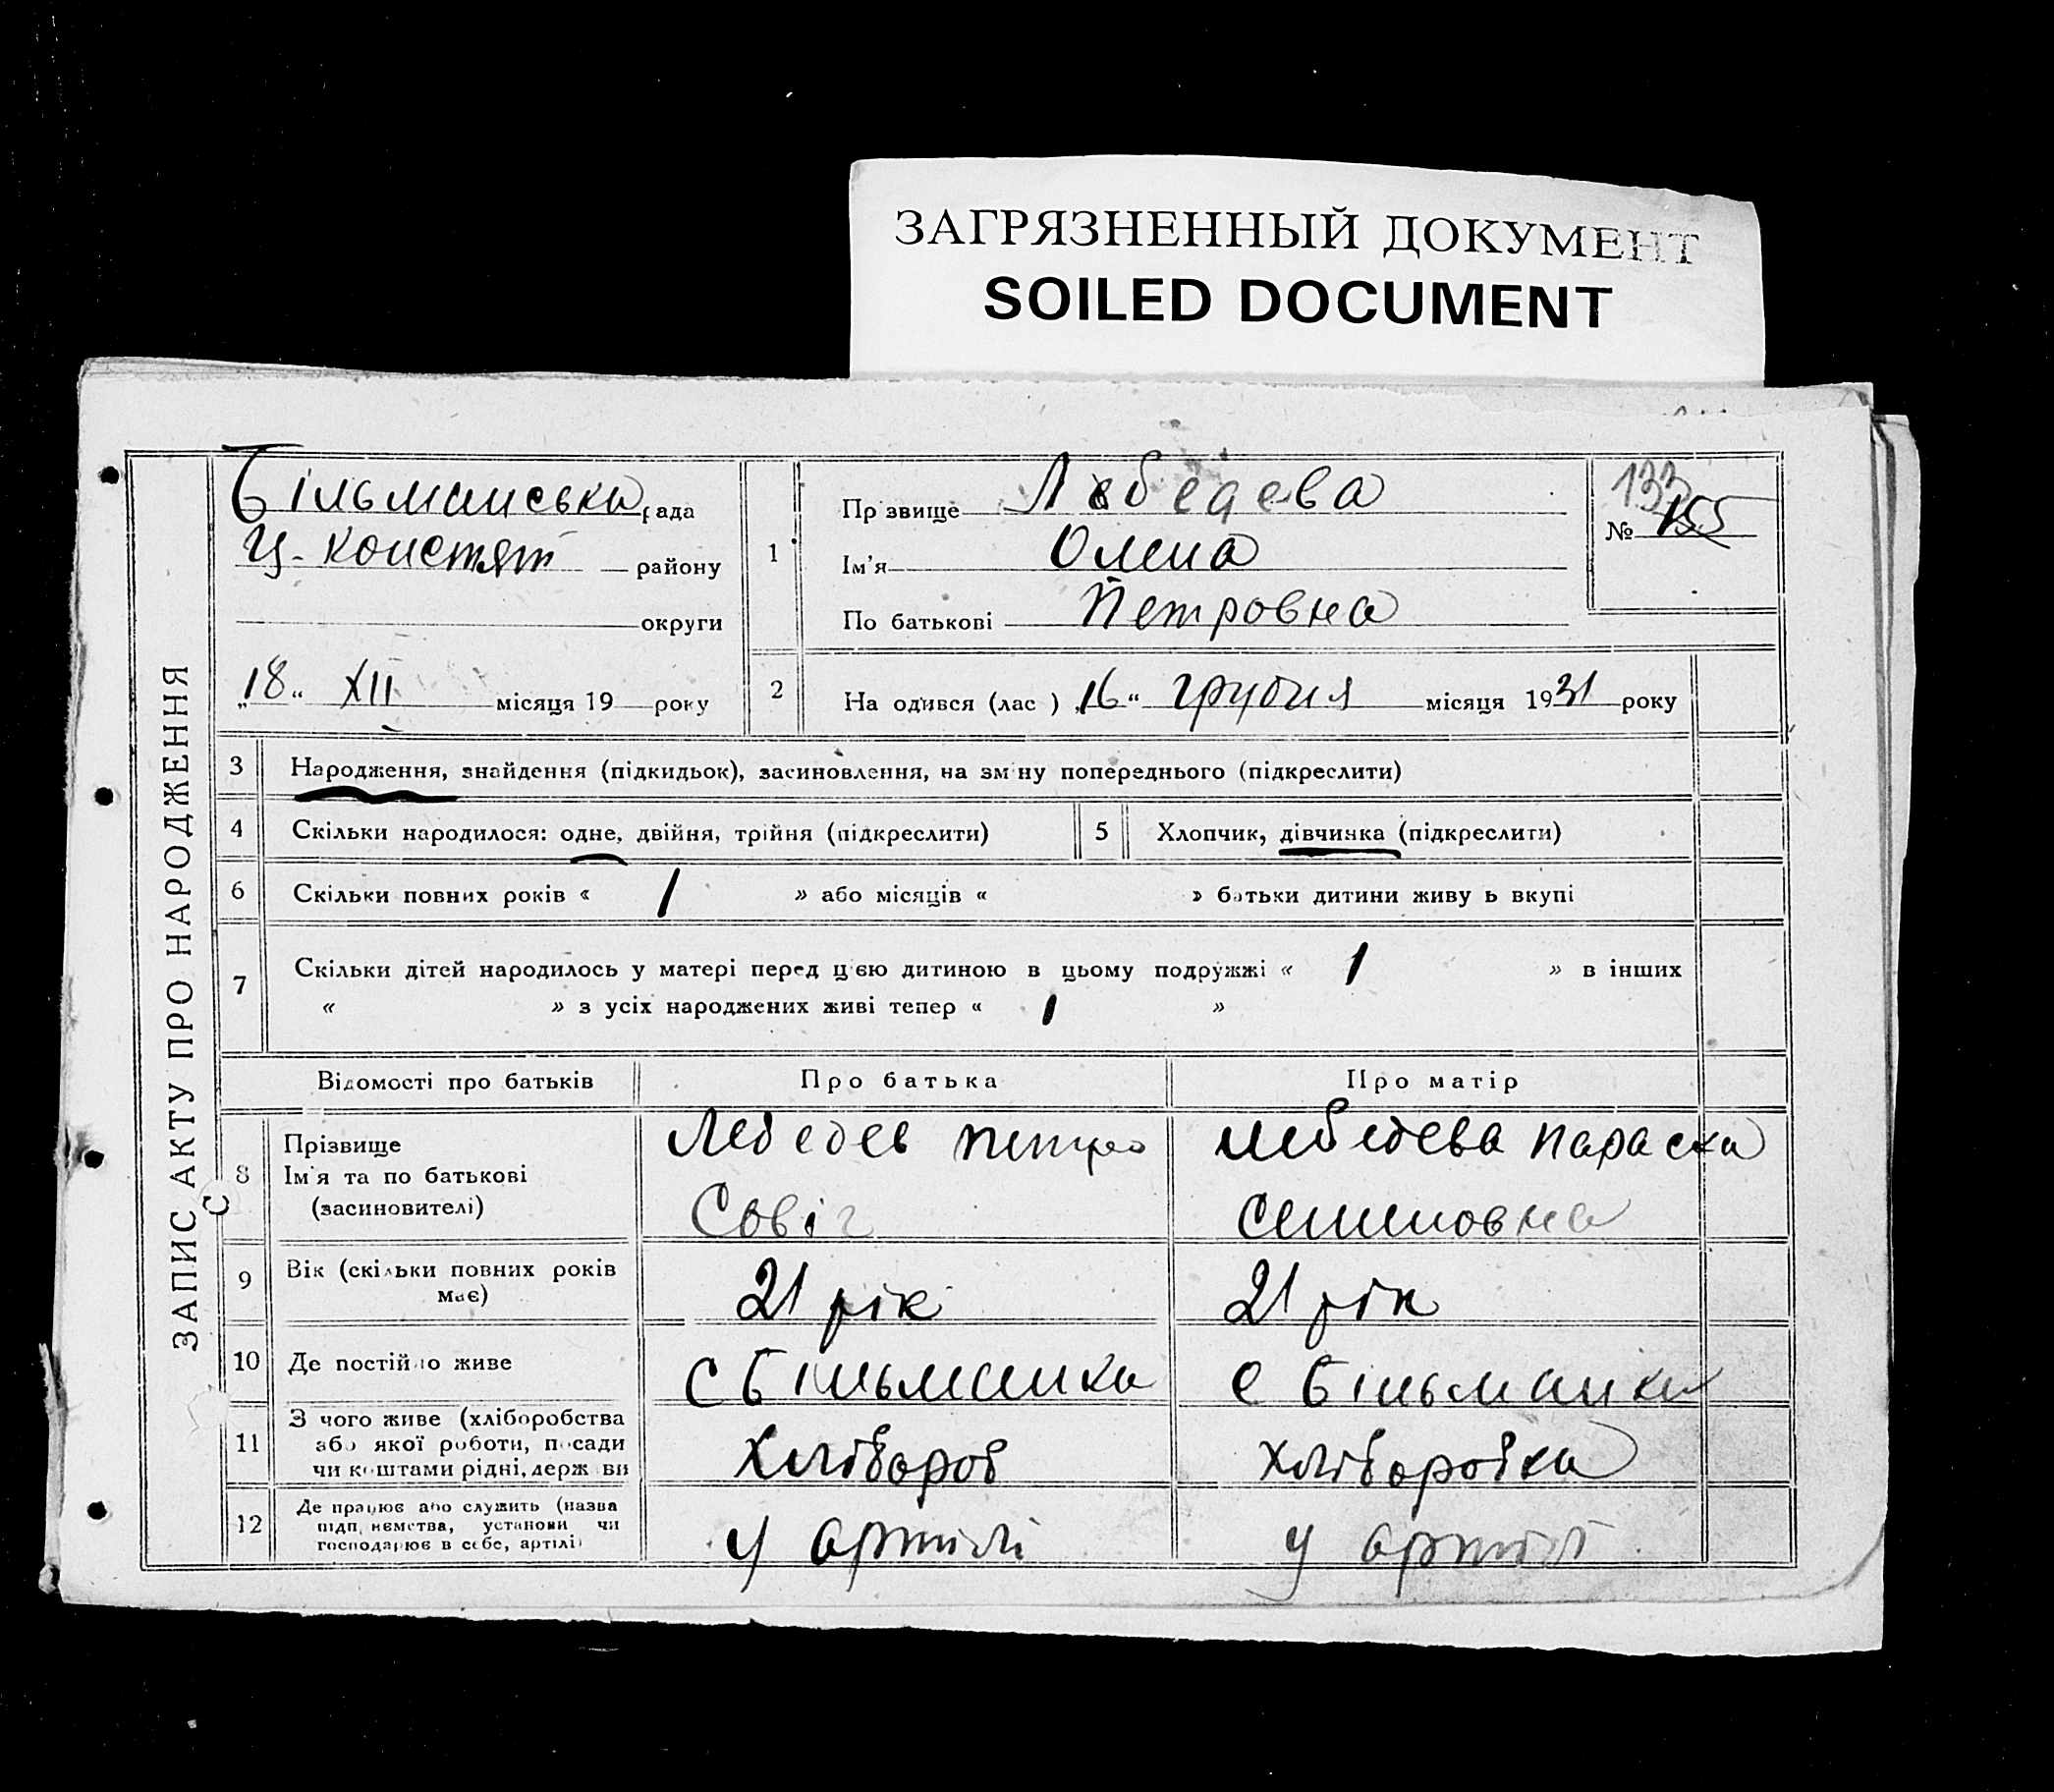 ЗАГРЯЗНЕННЫЙ ДОКУМЕНТ
SOILED DOCUMENT
ЗАПИС АКТУ ПРО НАРОДЖЕННЯ
Більманська рада
Ц-Констят району
округи
„18“ XII місяця 19 року
1
Прізвище Лебедева
Ім'я Олена
По батькові Петровна
133
№ 155
2
На одився (лас ) „16“ грудня місяця 1931 року
3 Народження, знайдення (підкидьок), засиновлення, на зміну попереднього (підкреслити)
4 Скільки народилося: одне, двійня, трійня (підкреслити)
5 Хлопчик, дівчинка (підкреслити)
6 Скільки повних років « 1 » або місяців « » батьки дитини живу ь вкупі
7 Скільки дітей народилось у матері перед цією дитиною в цьому подружжі « 1 » в інших
« » з усіх народжених живі тепер « 1 »
Відомості про батьків Про батька Про матір
8 Прізвище
Ім'я та по батькові
(засиновителі)
Лебедев Петро
Лебедева Параска
Семеновна
9 Вік (скільки повних років
має)
21 рік
21 рік
10 Де постійно живе
с Більманка
с Більманка
11 З чого живе (хліборобства
або якої роботи, посади
чи коштами рідні, держ ви
Хлібороб
Хліборобка
12 Де працює або служить (назва
підп иємства, установи чи
господарює в себе, артілі)
у артілі
у артілі